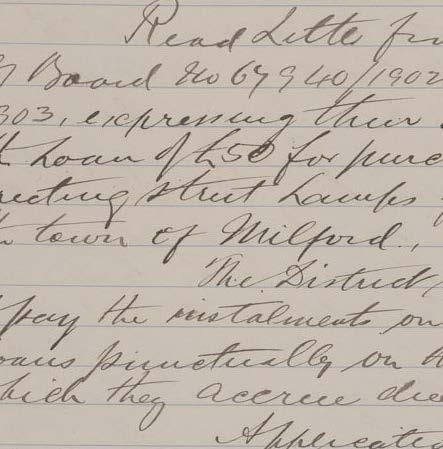 Read Letter fro
Board No 67940/1902
303, expressing their
Loan of £50 for purc
recting street Lamps
town of Milford.,
The District
pay the instalments on
oans punctually on
which they accrue due
Applicatio